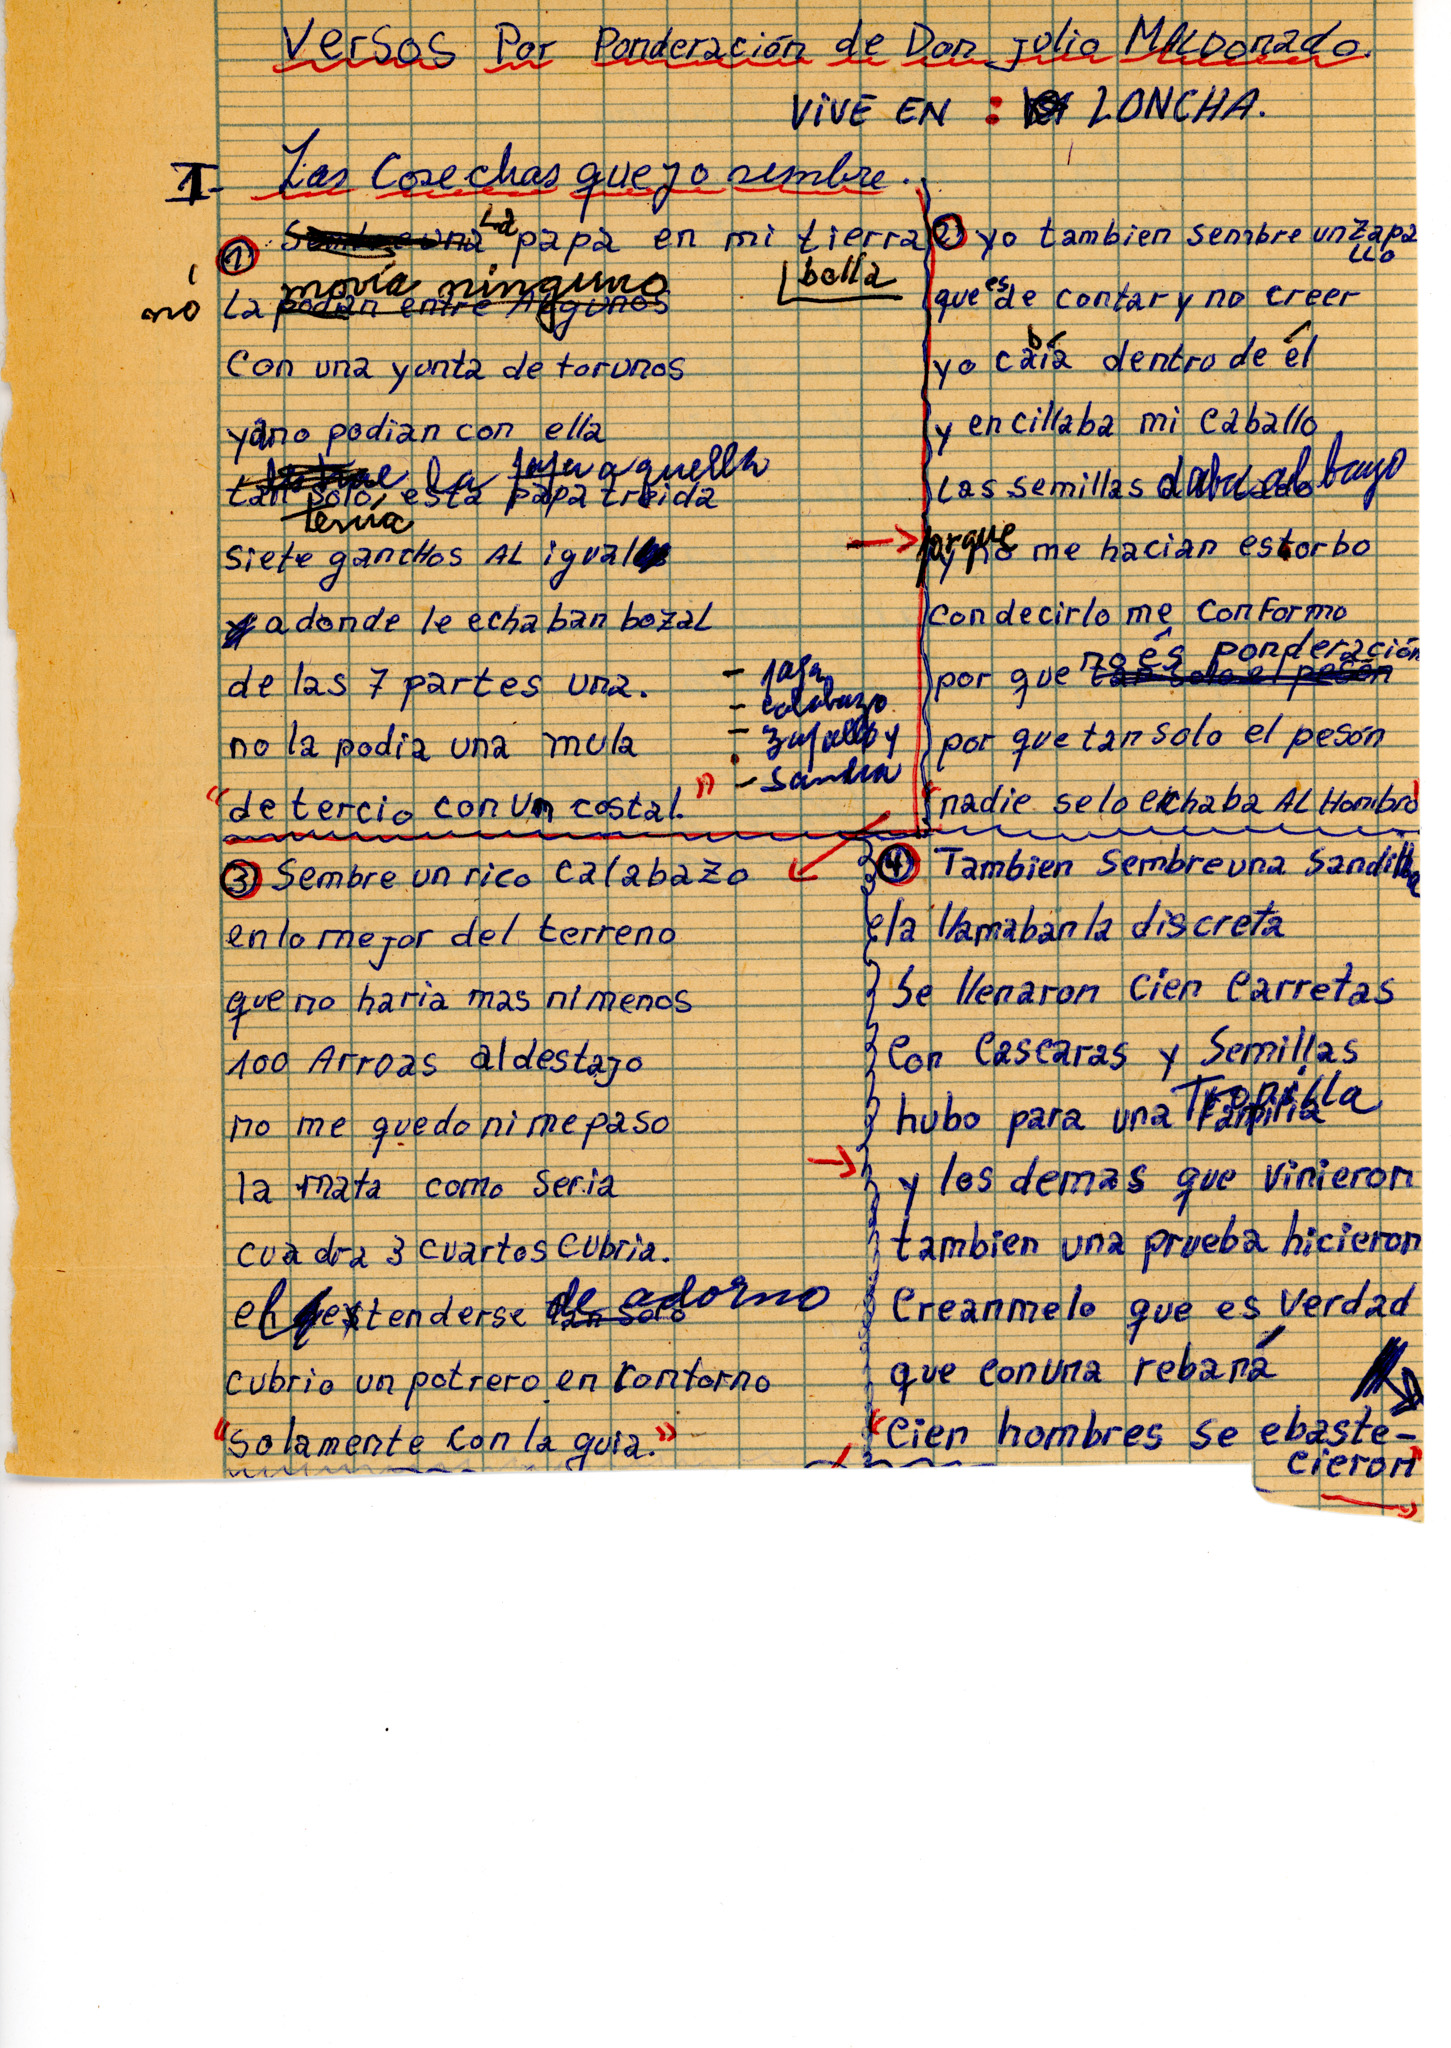 Versos Por Ponderación de Don julio MALDonado.
VIVE EN : LONCHA.
I- Las Cosechas que yo sembre.
① Sembre una La papa en mi tierra
bella
movía ninguno
no La podian entre Algunos
Con una yunta de torunos
ya no podian con ella
la papa aquella
tan solo esta papa treida
Tenía
siete ganchos AL igual
y a donde le echaban bozal
de las 7 partes una.
no la podia una mula
"de tercio con un costal."
- papa
- calabazo
- zapallo y
- sandia
② yo tambien sembre un zapa
LLO
que es de contar y no creer
yo cabía dentro de él
y encillaba mi caballo
Las semillas daba al bayo
porque
y no me hacian estorbo
con decirlo me conformo
no és ponderación
por que tan solo el pesón
por que tan solo el pesón
"nadie se lo echaba AL Hombro
③ Sembre un rico calabazo
en lo mejor del terreno
que no haria mas ni menos
100 Arroas al destajo
no me quedo ni me paso
la mata como seria
cuadra 3 cuartos cubria.
el extenderse de adorno
tan solo
cubrio un potrero en contorno
"solamente con la guia."
④ Tambien Sembre una Sandilla
e la llamaban la discreta
Se llenaron Cien Carretas
Con Cascaras y Semillas
Tropilla
hubo para una familia
y los demas que vinieron
tambien una prueba hicieron
Creanmelo que es Verdad
que con una rebaná
"Cien hombres se ebaste-
cieron"